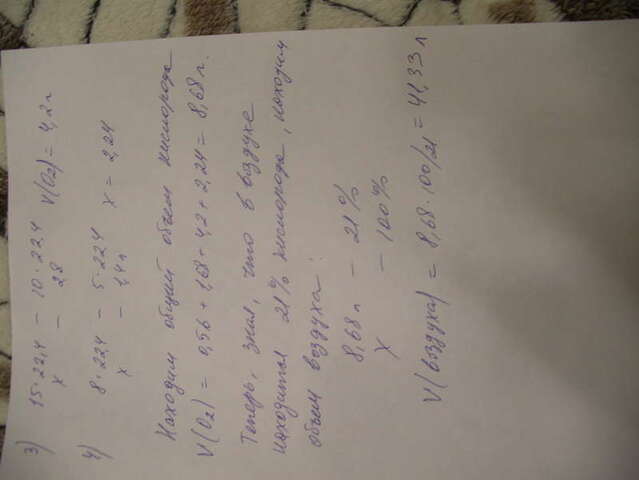 3) 15·22,4 — 10·22,4 V(O2) = 4,2 л
x — 2,8
4) 8·22,4 — 5·22,4 x = 2,24
x — 1,4 л
Находим общий объем кислорода
V(O2) = 0,56 + 1,68 + 4,2 + 2,24 = 8,68 л.
Теперь, зная, что в воздухе
находится 21% кислорода, находим
объем воздуха:
8,68 л — 21%
x — 100%
V(воздуха) = 8,68·100/21 = 41,33 л